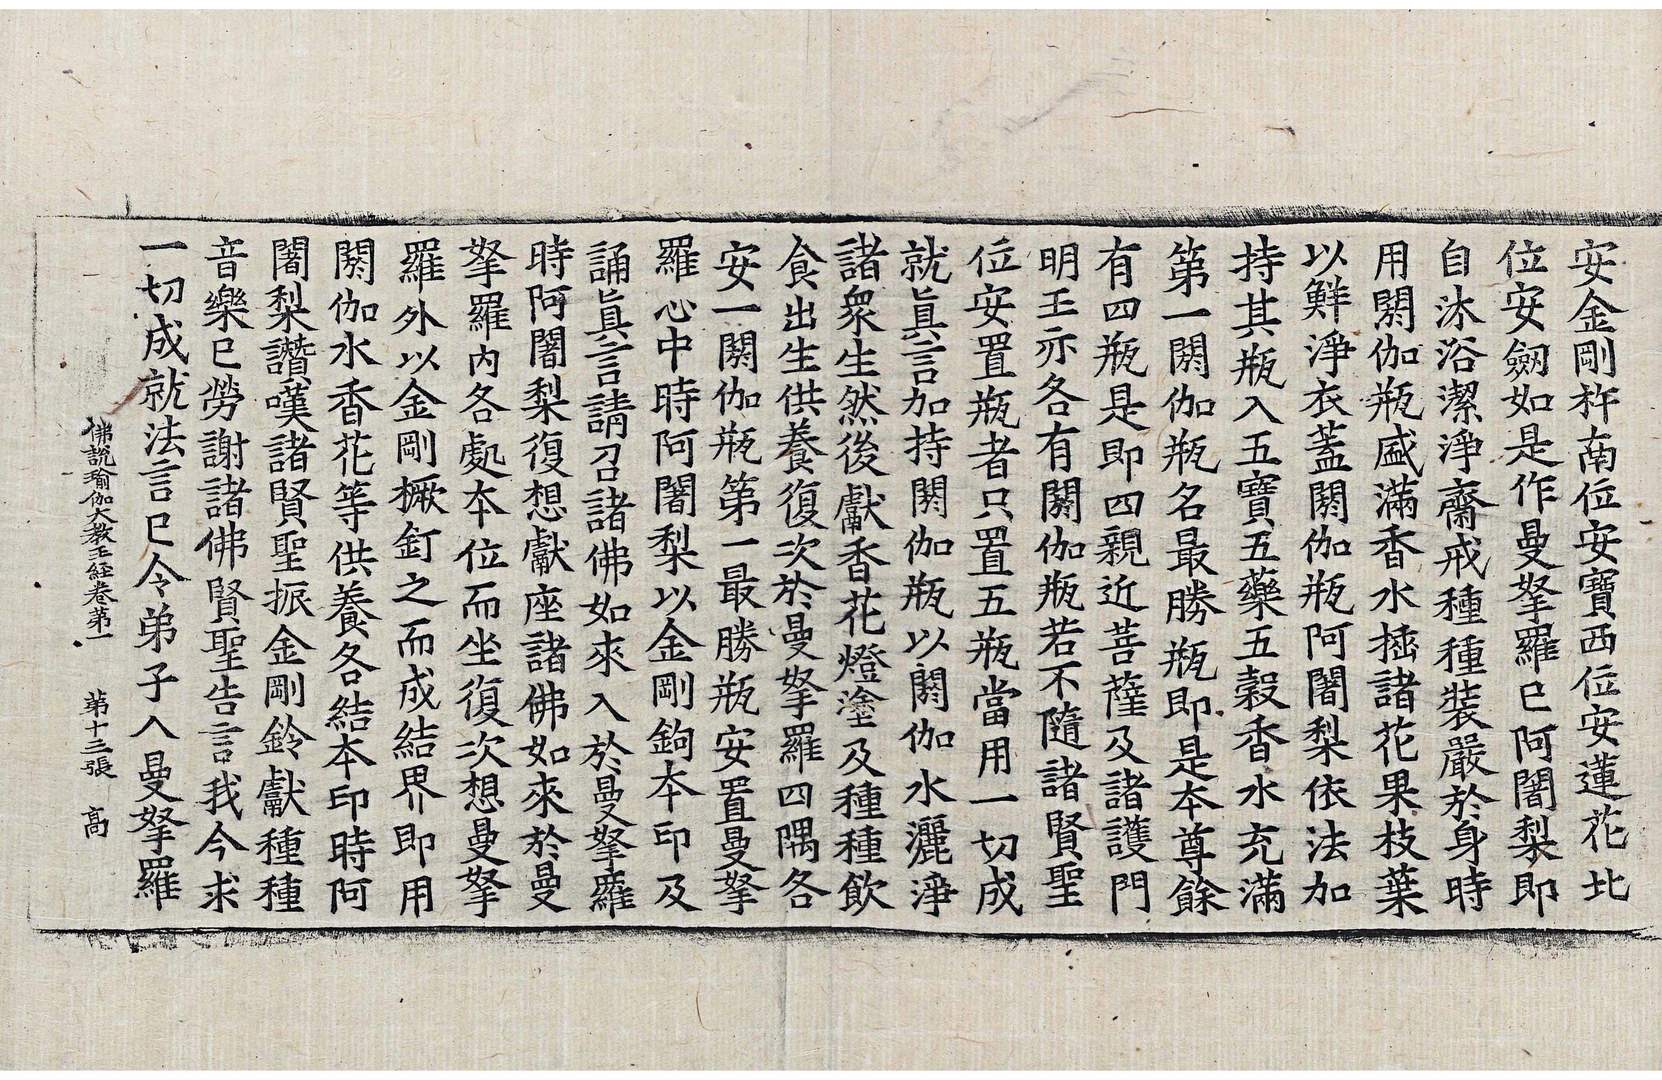 安金剛杵南位安寶西位安蓮花北
位安劒如是作曼拏羅已阿闍梨即
自沐浴潔淨齋戒種種裝嚴於身時
用閼伽瓶盛滿香水揷諸花果枝葉
以鮮淨衣蓋閼伽瓶阿闍梨依法加
持其瓶入五寶五藥五穀香水充滿
第一閼伽瓶名最勝瓶即是本尊餘
有四瓶是即四親近菩薩及諸護門
明王亦各有閼伽瓶若不隨諸賢聖
位安置瓶者只置五瓶當用一切成
就眞言加持閼伽瓶以閼伽水灑淨
諸衆生然後獻香花燈塗及種種飲
食出生供養復次於曼拏羅四隅各
安一閼伽瓶第一最勝瓶安置曼拏
羅心中時阿闍梨以金剛鉤本印及
誦眞言請召諸佛如來入於曼拏羅
時阿闍梨復想獻座諸佛如來於曼
拏羅內各處本位而坐復次想曼拏
羅外以金剛橛釘之而成結界即用
閼伽水香花等供養各結本印時阿
闍梨讚嘆諸賢聖振金剛鈴獻種種
音樂已勞謝諸佛賢聖告言我今求
一切成就法言已令弟子入曼拏羅
佛說瑜伽大教王經卷第一 第十三張 高